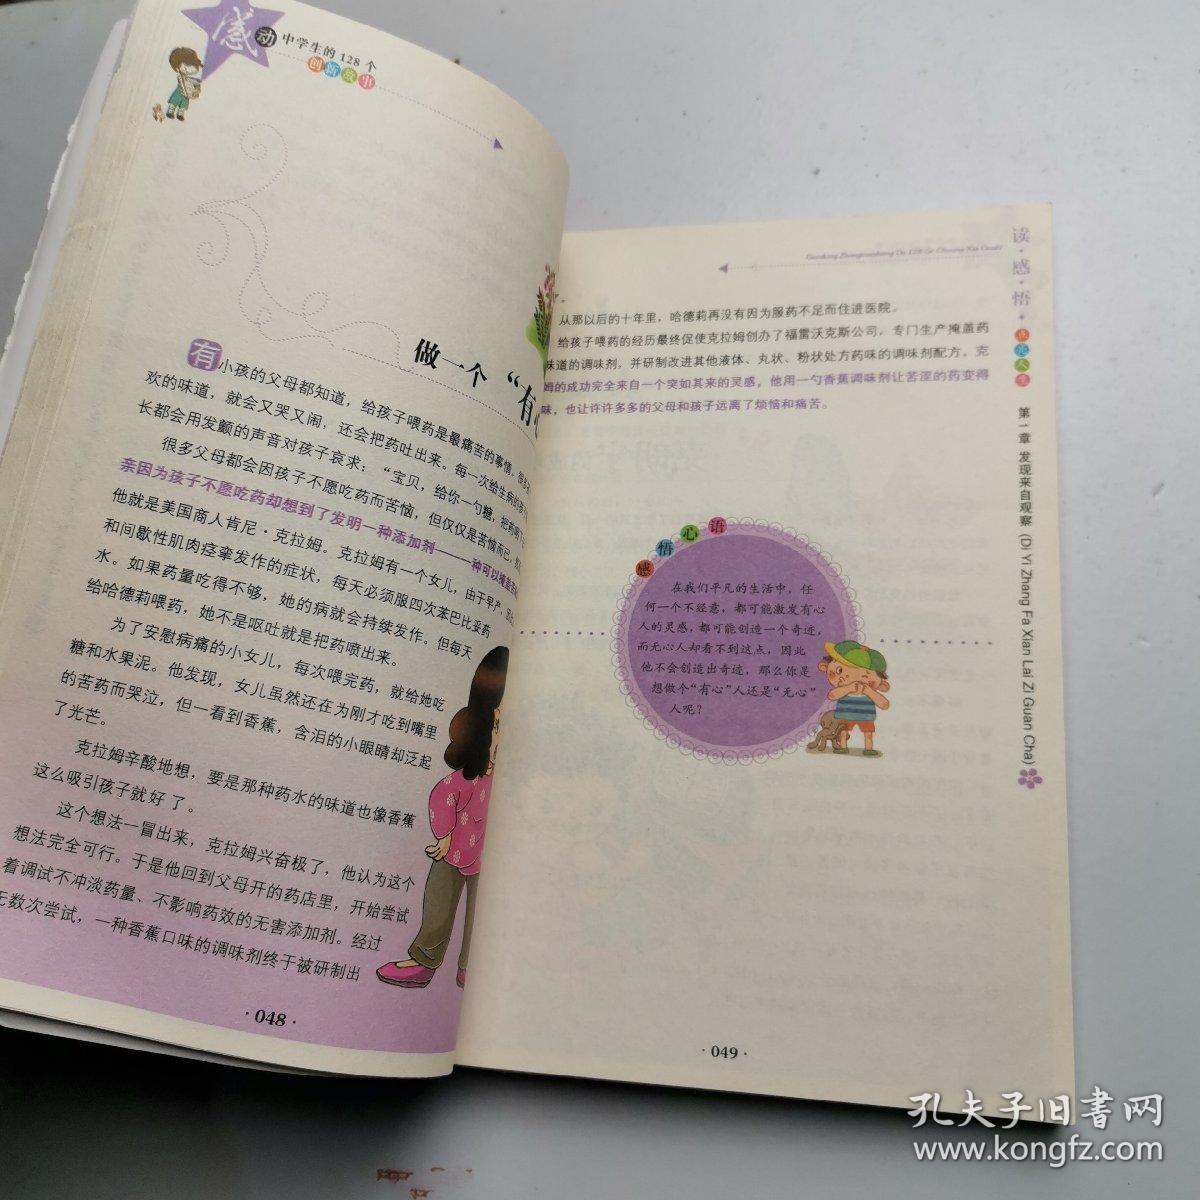 感动中学生的128个
创新故事
做一个“有心
有小孩的父母都知道，给孩子喂药是最痛苦的事情。很多
欢的味道，就会又哭又闹，还会把药吐出来。每一次给生病的
长都会用发颤的声音对孩子哀求：“宝贝，给你一勺糖，把药
很多父母都会因孩子不愿吃药而苦恼，但仅仅是苦恼而已，
亲因为孩子不愿吃药却想到了发明一种添加剂——一种可以掩盖
他就是美国商人肯尼·克拉姆。克拉姆有一个女儿，由于早产，
和间歇性肌肉痉挛发作的症状，每天必须服四次苯巴比妥药
水。如果药量吃得不够，她的病就会持续发作。但每天
给哈德莉喂药，她不是呕吐就是把药喷出来。
为了安慰病痛的小女儿，每次喂完药，就给她吃
糖和水果泥。他发现，女儿虽然还在为刚才吃到嘴里
的苦药而哭泣，但一看到香蕉，含泪的小眼睛却泛起
了光芒。
克拉姆辛酸地想，要是那种药水的味道也像香蕉
这么吸引孩子就好了。
这个想法一冒出来，克拉姆兴奋极了，他认为这个
想法完全可行。于是他回到父母开的药店里，开始尝试
着调试不冲淡药量、不影响药效的无害添加剂。经过
无数次尝试，一种香蕉口味的调味剂终于被研制出
·048·
Gandong Zhongxuesheng De 128 Ge Chuang Xin Gushi
从那以后的十年里，哈德莉再没有因为服药不足而住进医院。
给孩子喂药的经历最终促使克拉姆创办了福雷沃克斯公司，专门生产掩盖药
味道的调味剂，并研制改进其他液体、丸状、粉状处方药味的调味剂配方。克
姆的成功完全来自一个突如其来的灵感，他用一勺香蕉调味剂让苦涩的药变得
味，也让许许多多的父母和孩子远离了烦恼和痛苦。
感悟心语
在我们平凡的生活中，任
何一个不经意，都可能激发有心
人的灵感，都可能创造一个奇迹，
而无心人却看不到这点，因此
他不会创造出奇迹，那么你是
想做个“有心”人还是“无心”
人呢？
读·感·悟·点亮人生
第1章 发现来自观察 (Di Yi Zhang Fa Xian Lai Zi Guan Cha)
·049·
孔夫子旧书网
www.kongfz.com